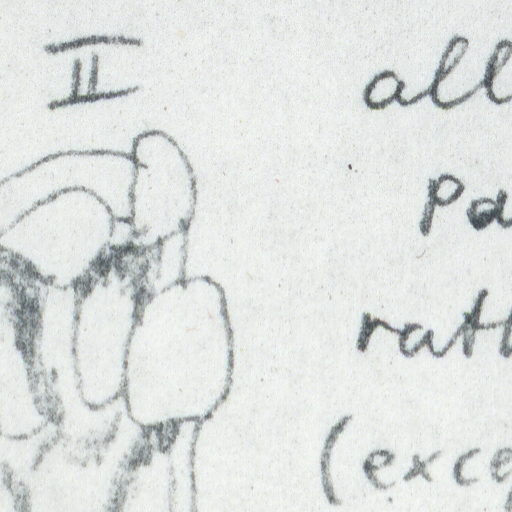 II
all
Pa
rath
(excep